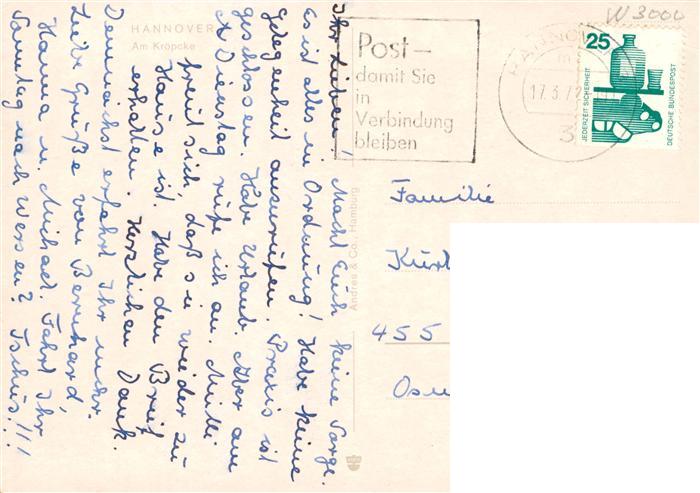 HANNOVER
Am Kröpcke
W 3000
Post—
damit Sie
in
Verbindung
bleiben
HANNOV
17.3.7
3
25
JEDERZEIT SICHERHEIT
DEUTSCHE BUNDESPOST
Ihr Lieben! Macht Euch keine Sorge.
Es ist alles in Ordnung! Habe keine
Gelegenheit auszurufen. Praxis ist
geschlossen. Habe Urlaub. Aber am
Dienstag rufe ich an. Mutti
freut sich, daß sie wieder zu
Hause ist. Habe den Brief
erhalten. Herzlichen Dank.
Demnächst erfahrt Ihr mehr.
Liebe Grüße von Bernhard,
Hanna u. Michael. Fahrt Ihr
Sonntag nach Wersen? Tschüs!!!
Andres & Co., Hamburg
Familie
Kurt
455
Osn